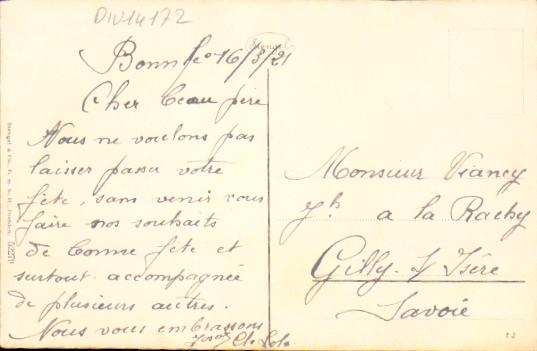 DIV14172
Stengel
Bonn le 16/3/21
Cher beau père
Nous ne voulons pas
laisser passer votre
fête, sans venir vous
faire nos souhaits
de bonne fête et
surtout accompagnée
de plusieurs autres.
Nous vous embrassons
Lola
Monsieur Viancy
Jh a la Rachy
Gilly s/ Isère
Savoie
Stengel & Co., G. m. b. H., Dresden.